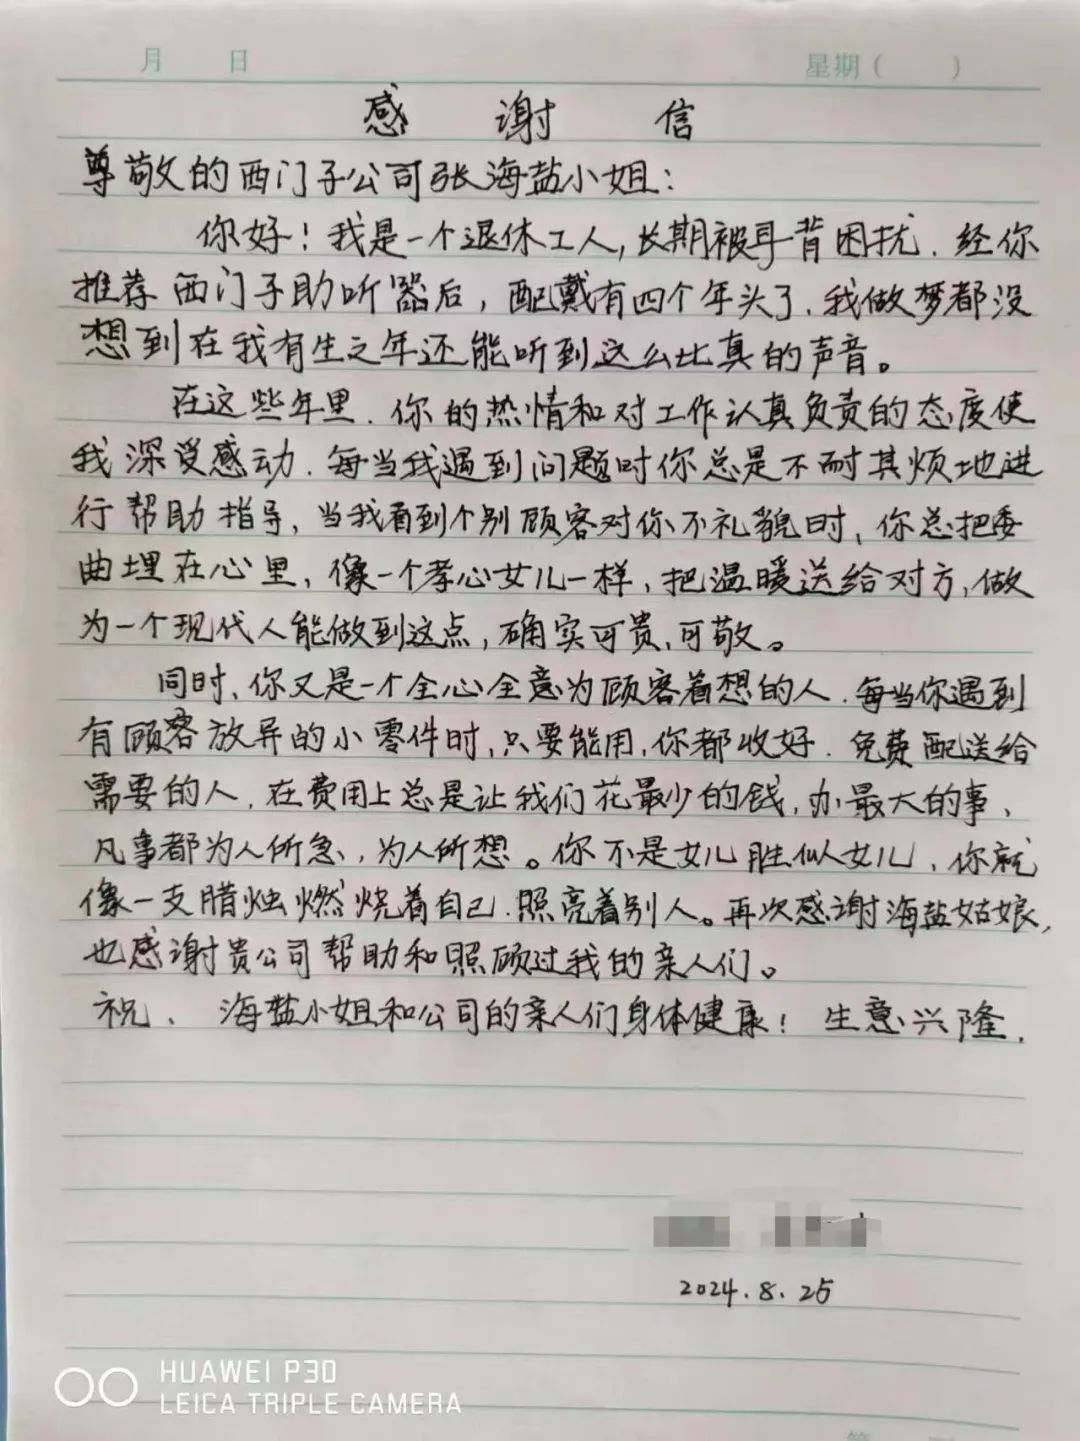 月 日 星期（ ）
感 谢 信
尊敬的西门子公司张海盐小姐：
你好！我是一个退休工人，长期被耳背困扰．经你
推荐西门子助听器后，配戴有四个年头了．我做梦都没
想到在我有生之年还能听到这么比真的声音。
在这些年里．你的热情和对工作认真负责的态度使
我深受感动．每当我遇到问题时你总是不耐其烦地进
行帮助指导、当我看到个别顾客对你不礼貌时、你总把委
曲埋在心里、像一个孝心女儿一样，把温暖送给对方，做
为一个现代人能做到这点，确实可贵，可敬。
同时、你又是一个全心全意为顾客着想的人．每当你遇到
有顾客放弃的小零件时，只要能用，你都收好．免费配送给
需要的人．在费用上总是让我们花最少的钱，办最大的事、
凡事都为人所急，为人所想。你不是女儿胜似女儿、你就
像一支腊烛燃烧着自己．照亮着别人。再次感谢海盐姑娘，
也感谢贵公司帮助和照顾过我的亲人们。
祝、海盐小姐和公司的亲人们身体健康！生意兴隆．
2024.8.25
HUAWEI P30
LEICA TRIPLE CAMERA